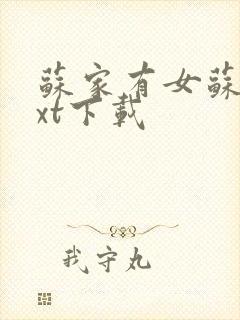 蘇家有女蘇
xt下載
我守丸